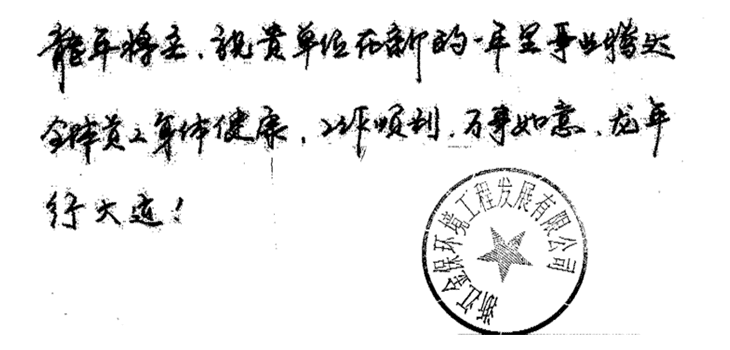 龍年将至、祝贵单位在新的一年里事业腾达
全体员工身体健康，工作顺利、万事如意、龙年
行大运！
浙江金保环境工程发展有限公司